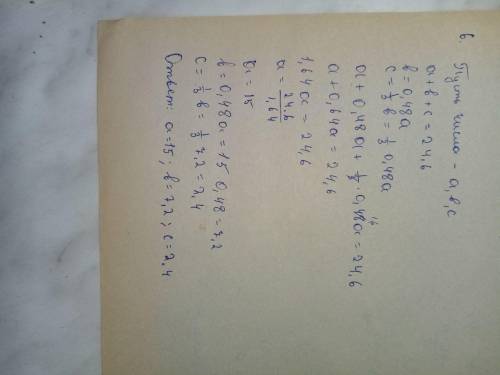 6. Пусть числа - a, b, c
a + b + c = 24,6
b = 0,48a
c = 1/3 b = 1/3 0,48a
a + 0,48a + 1/3 · 0,48a = 24,6
a + 0,64a = 24,6
1,64a = 24,6
a = 24,6/1,64
a = 15
b = 0,48a = 15 0,48 = 7,2
c = 1/3 b = 1/3 7,2 = 2,4
Ответ: a = 15; b = 7,2; c = 2,4